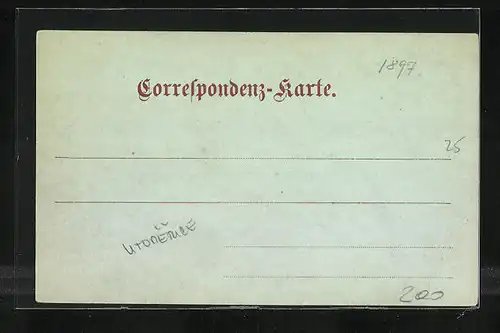 1897
Correspondenz-Karte.
25
200